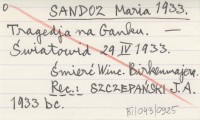 o
SANDOZ Maria 1933.
Tragedja na Ganku. —
Światowid 29 IV 1933.
Śmierć Winc. Birkenmajera.
Rec.: SZCZEPAŃSKI J. A.
1933 bc.
BI/043/0925